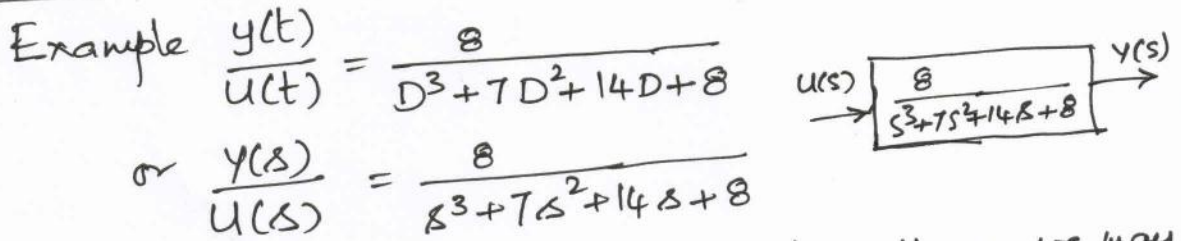 Example y(t)/u(t) = 8/(D³+7D²+14D+8)
U(s) → 8/(s³+7s²+14s+8) → Y(s)
or Y(s)/U(s) = 8/(s³+7s²+14s+8)